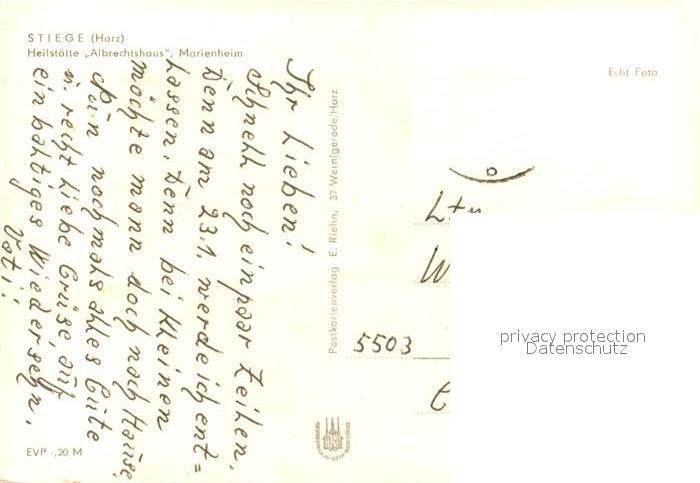 STIEGE (Harz)
Heilstätte „Albrechtshaus“, Marienheim
Echt Foto
Ihr Lieben!
Schnell noch ein paar Zeilen,
Denn am 23.1. werde ich ent=
Lassen, Denn bei Kleinen
möchte mann doch nach Hause
Nun nochmals alles Gute
u. recht Liebe Grüße auf
ein baldiges Wiedersehn.
Vati!
Postkartenverlag E. Riehn, 37 Wernigerode/Harz
5503
privacy protection
Datenschutz
EVP -,20 M